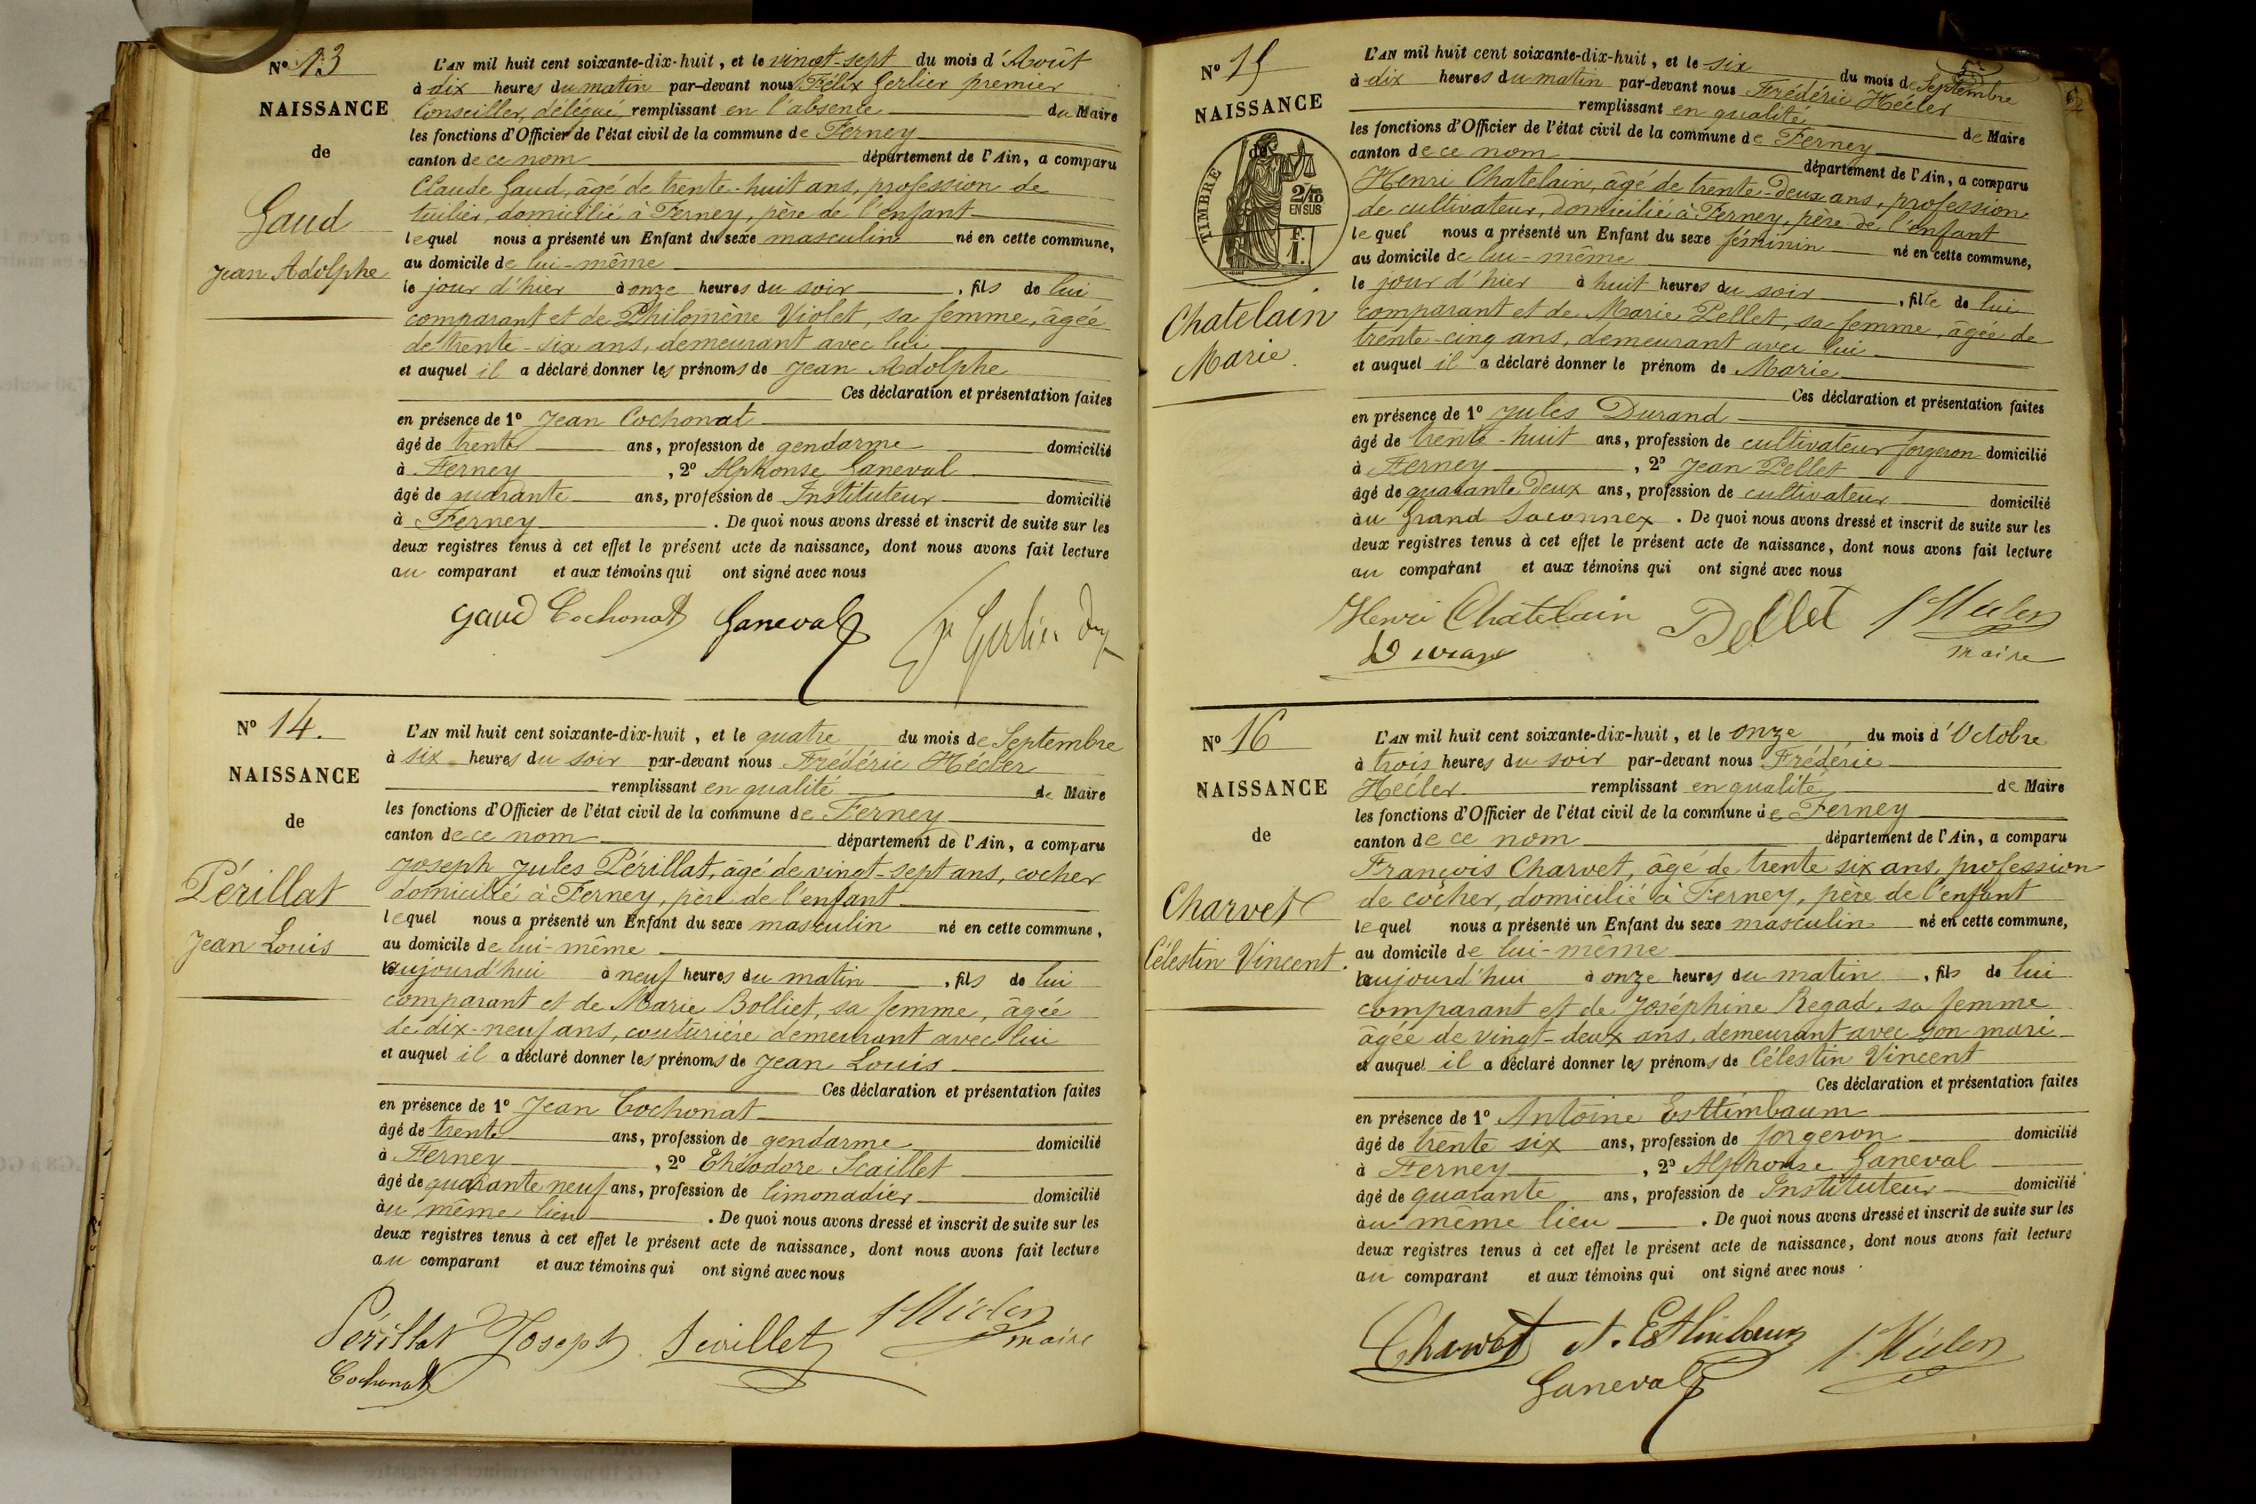 Nº 13
NAISSANCE
de
Gaud
Jean Adolphe
L'AN mil huit cent soixante-dix-huit, et le vingt-sept du mois d'Août
à dix heures du matin par-devant nous Félix Gerlier premier
Conseiller, délégué remplissant en l'absence du Maire
les fonctions d'Officier de l'état civil de la commune de Ferney
canton de ce nom département de l'Ain, a comparu
Claude Gaud, âgé de trente-huit ans, profession de
tuilier, domicilié à Ferney, père de l'enfant
lequel nous a présenté un Enfant du sexe masculin né en cette commune,
au domicile de lui-même
le jour d'hier à onze heures du soir, fils de lui
comparant et de Philomène Violet, sa femme, âgée
de trente-six ans, demeurant avec lui
et auquel il a déclaré donner les prénoms de Jean Adolphe
Ces déclaration et présentation faites
en présence de 1º Jean Cochonat
âgé de trente ans, profession de gendarme domicilié
à Ferney, 2º Alphonse Ganeval
âgé de quarante ans, profession de Instituteur domicilié
à Ferney. De quoi nous avons dressé et inscrit de suite sur les
deux registres tenus à cet effet le présent acte de naissance, dont nous avons fait lecture
au comparant et aux témoins qui ont signé avec nous
Gaud Cochonat Ganeval Gerlier
Nº 14.
NAISSANCE
de
Périllat
Jean Louis
L'AN mil huit cent soixante-dix-huit, et le quatre du mois de Septembre
à six heures du soir par-devant nous Frédéric Hécler
remplissant en qualité de Maire
les fonctions d'Officier de l'état civil de la commune de Ferney
canton de ce nom département de l'Ain, a comparu
Joseph Jules Périllat, âgé de vingt-sept ans, cocher
domicilié à Ferney, père de l'enfant
lequel nous a présenté un Enfant du sexe masculin né en cette commune,
au domicile de lui-même
aujourd'hui à neuf heures du matin, fils de lui
comparant et de Marie Bolliet, sa femme, âgée
de dix-neuf ans, couturière demeurant avec lui
et auquel il a déclaré donner les prénoms de Jean Louis
Ces déclaration et présentation faites
en présence de 1º Jean Cochonat
âgé de trente ans, profession de gendarme domicilié
à Ferney, 2º Théodore Scaillet
âgé de quarante neuf ans, profession de limonadier domicilié
au même lieu. De quoi nous avons dressé et inscrit de suite sur les
deux registres tenus à cet effet le présent acte de naissance, dont nous avons fait lecture
au comparant et aux témoins qui ont signé avec nous
Périllat Joseph Scaillet Hécler
maire
Cochonat
Nº 15
NAISSANCE
de
TIMBRE
2/10
EN SUS
F.
1.
Chatelain
Marie.
L'AN mil huit cent soixante-dix-huit, et le six du mois de Septembre
à dix heures du matin par-devant nous Frédéric Hécler
remplissant en qualité de Maire
les fonctions d'Officier de l'état civil de la commune de Ferney
canton de ce nom département de l'Ain, a comparu
Henri Chatelain, âgé de trente-deux ans, profession
de cultivateur, domicilié à Ferney, père de l'enfant
lequel nous a présenté un Enfant du sexe féminin né en cette commune,
au domicile de lui-même
le jour d'hier à huit heures du soir, fille de lui
comparant et de Marie Pellet, sa femme, âgée de
trente-cinq ans, demeurant avec lui
et auquel il a déclaré donner le prénom de Marie
Ces déclaration et présentation faites
en présence de 1º Jules Durand
âgé de trente-huit ans, profession de cultivateur forgeron domicilié
à Ferney, 2º Jean Pellet
âgé de quarante deux ans, profession de cultivateur domicilié
au Grand Saconnex. De quoi nous avons dressé et inscrit de suite sur les
deux registres tenus à cet effet le présent acte de naissance, dont nous avons fait lecture
au comparant et aux témoins qui ont signé avec nous
Henri Chatelain Pellet Hécler
Durand maire
Nº 16
NAISSANCE
de
Charvet
Célestin Vincent.
L'AN mil huit cent soixante-dix-huit, et le onze du mois d'Octobre
à trois heures du soir par-devant nous Frédéric
Hécler remplissant en qualité de Maire
les fonctions d'Officier de l'état civil de la commune de Ferney
canton de ce nom département de l'Ain, a comparu
François Charvet, âgé de trente six ans, profession
de cocher, domicilié à Ferney, père de l'enfant
lequel nous a présenté un Enfant du sexe masculin né en cette commune,
au domicile de lui-même
aujourd'hui à onze heures du matin, fils de lui
comparant et de Joséphine Regad, sa femme
âgée de vingt-deux ans, demeurant avec son mari
et auquel il a déclaré donner les prénoms de Célestin Vincent
Ces déclaration et présentation faites
en présence de 1º Antoine Esttimbaum
âgé de trente six ans, profession de forgeron domicilié
à Ferney, 2º Alphonse Ganeval
âgé de quarante ans, profession de Instituteur domicilié
au même lieu. De quoi nous avons dressé et inscrit de suite sur les
deux registres tenus à cet effet le présent acte de naissance, dont nous avons fait lecture
au comparant et aux témoins qui ont signé avec nous
Charvet Hécler
Ganeval